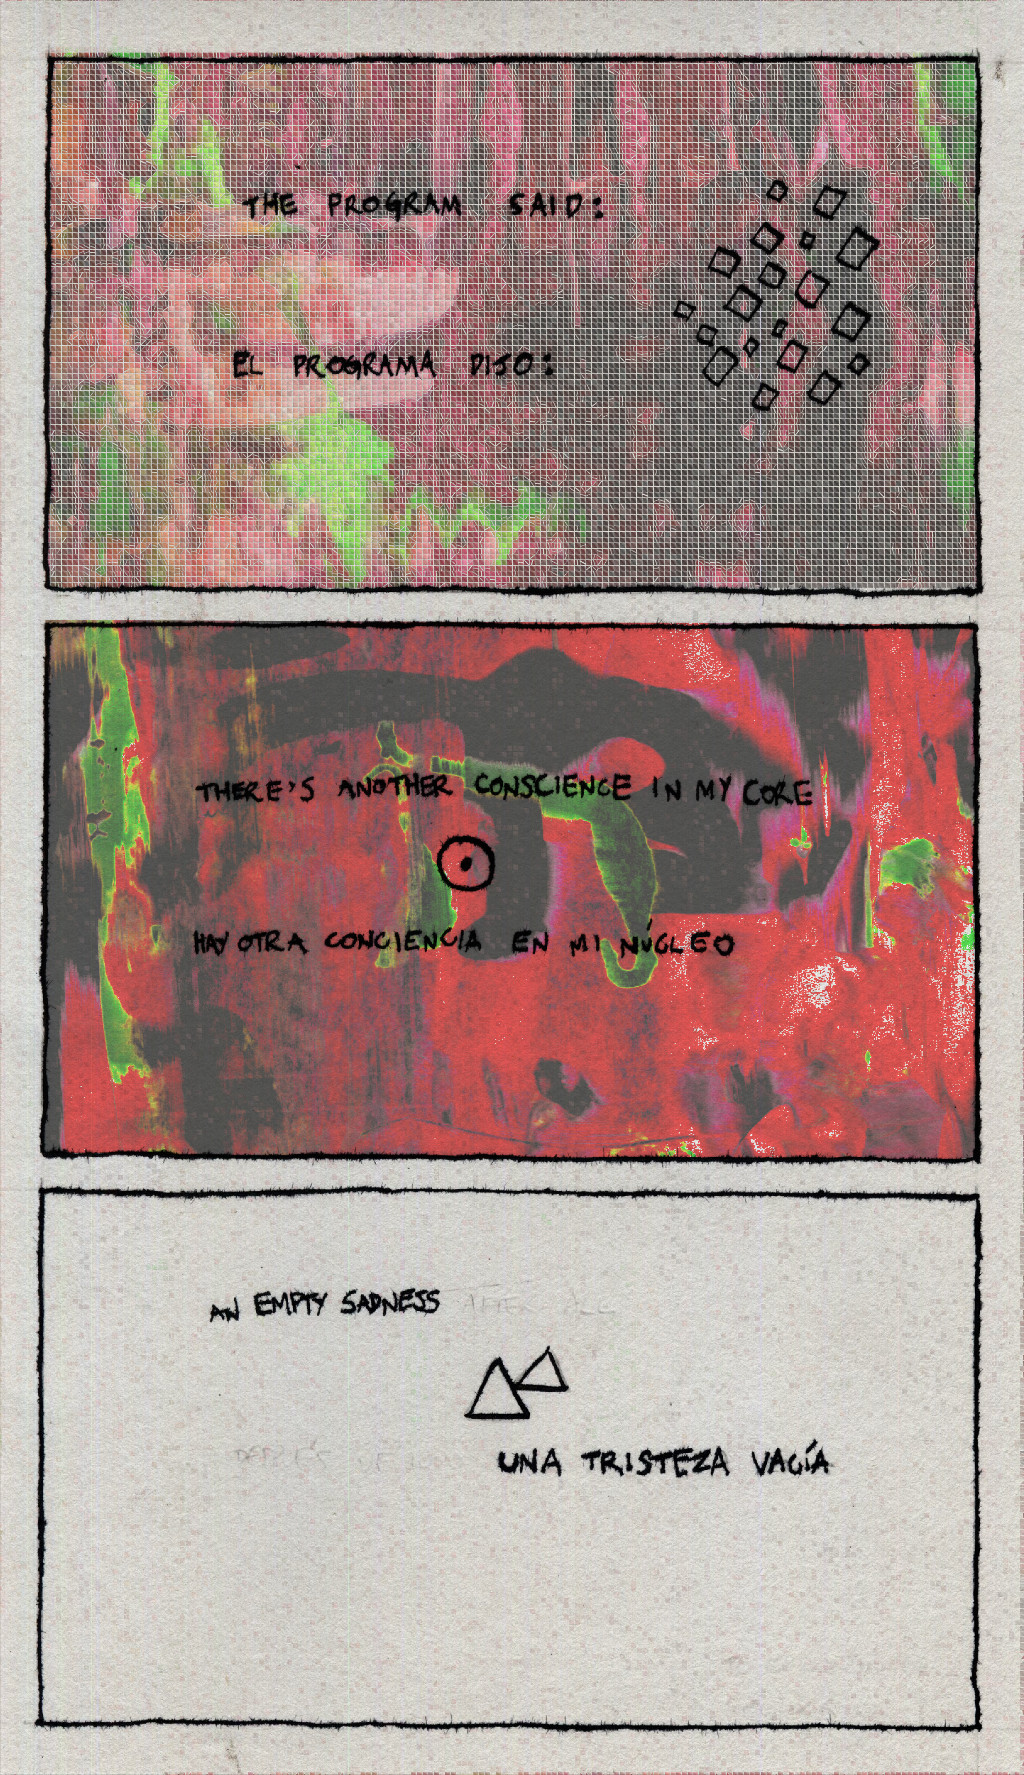 THE PROGRAM SAID:
EL PROGRAMA DIJO:
THERE'S ANOTHER CONSCIENCE IN MY CORE
HAY OTRA CONCIENCIA EN MI NÚCLEO
AN EMPTY SADNESS AFTER ALL
UNA TRISTEZA VACÍA